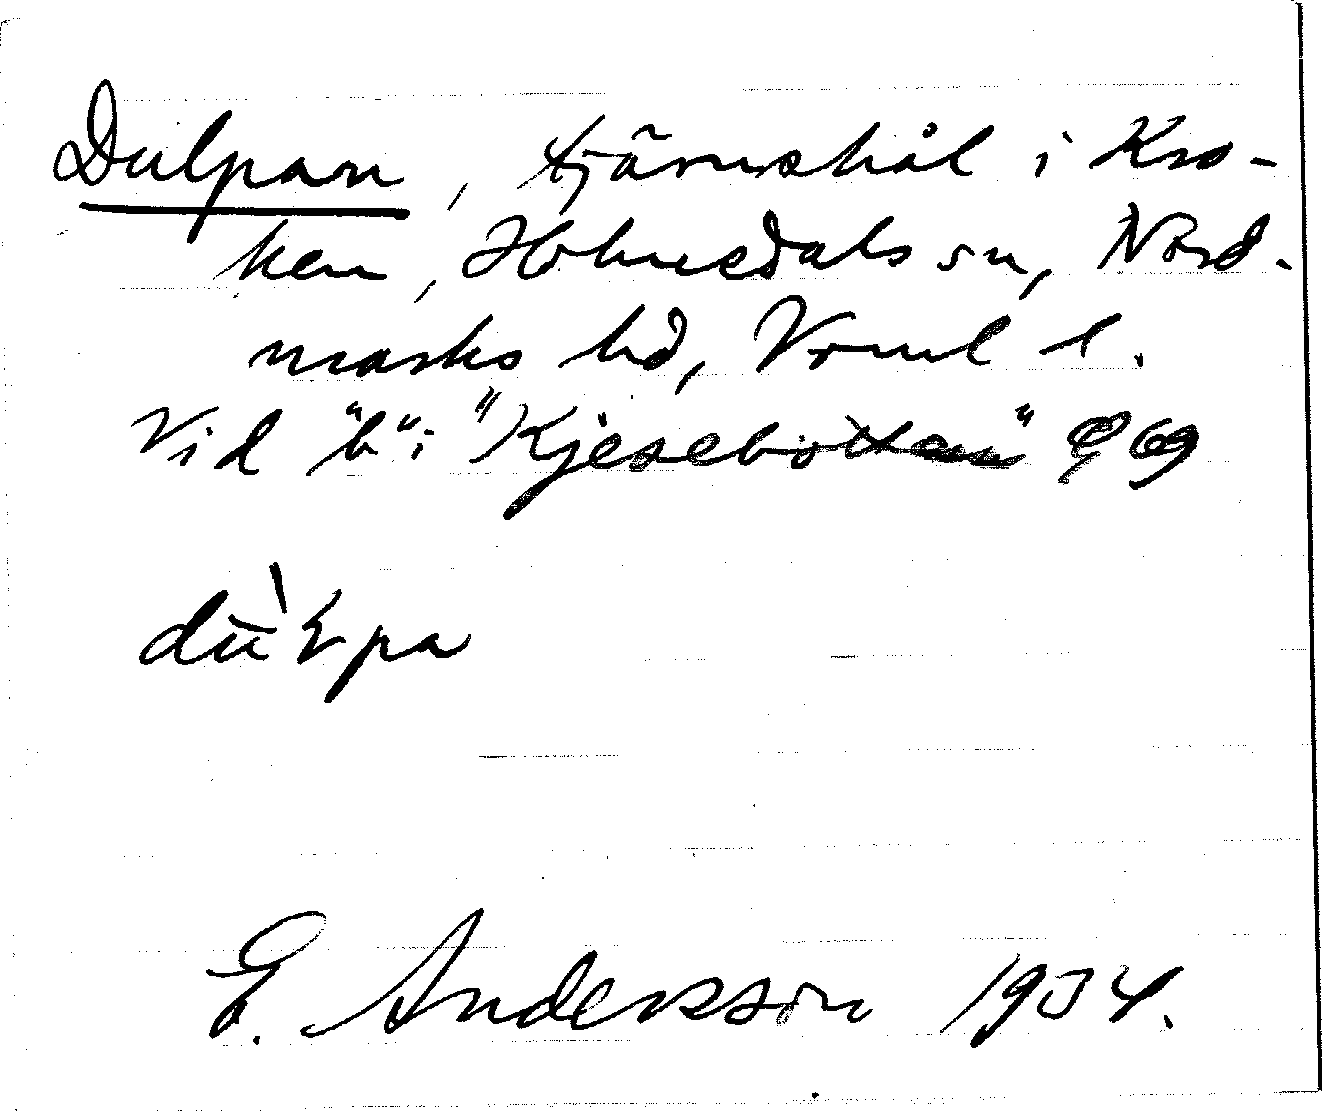 Dulpan, tjärnshål i Kro-
ken, Holmedals sn, Nord-
marks hd, Vrml l.
Vid "b" i "Kjesebotten" 9 69
E. Andersson 1934.